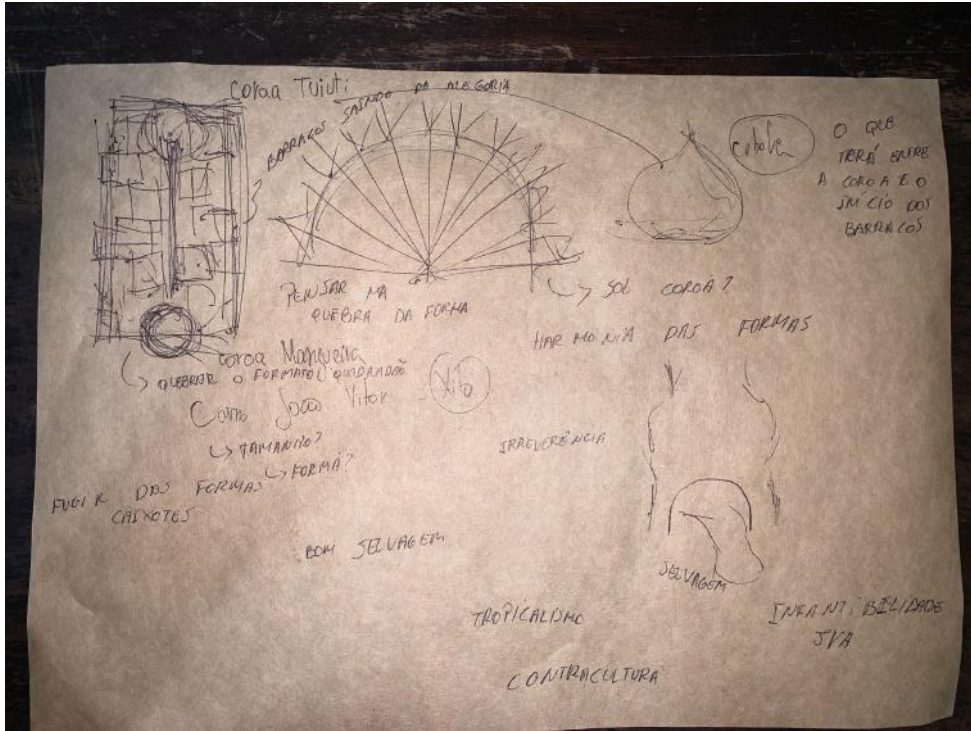 coroa Tuiuti
BARRACOS SAINDO DA ALEGORIA
cebola
O QUE
TERÁ ENTRE
A COROA E O
INÍCIO DOS
BARRACOS
PENSAR NA
QUEBRA DA FORMA
SOL COROA?
HARMONIA DAS FORMAS
coroa Mangueira
QUEBRAR O FORMATO QUADRADÃO
Carro João Vitor
TAMANHO?
FORMA?
FUGIR DAS FORMAS
CAIXOTES
IRREVERÊNCIA
BOM SELVAGEM
SELVAGEM
TROPICALISMO
INFANTIBILIDADE
CONTRACULTURA